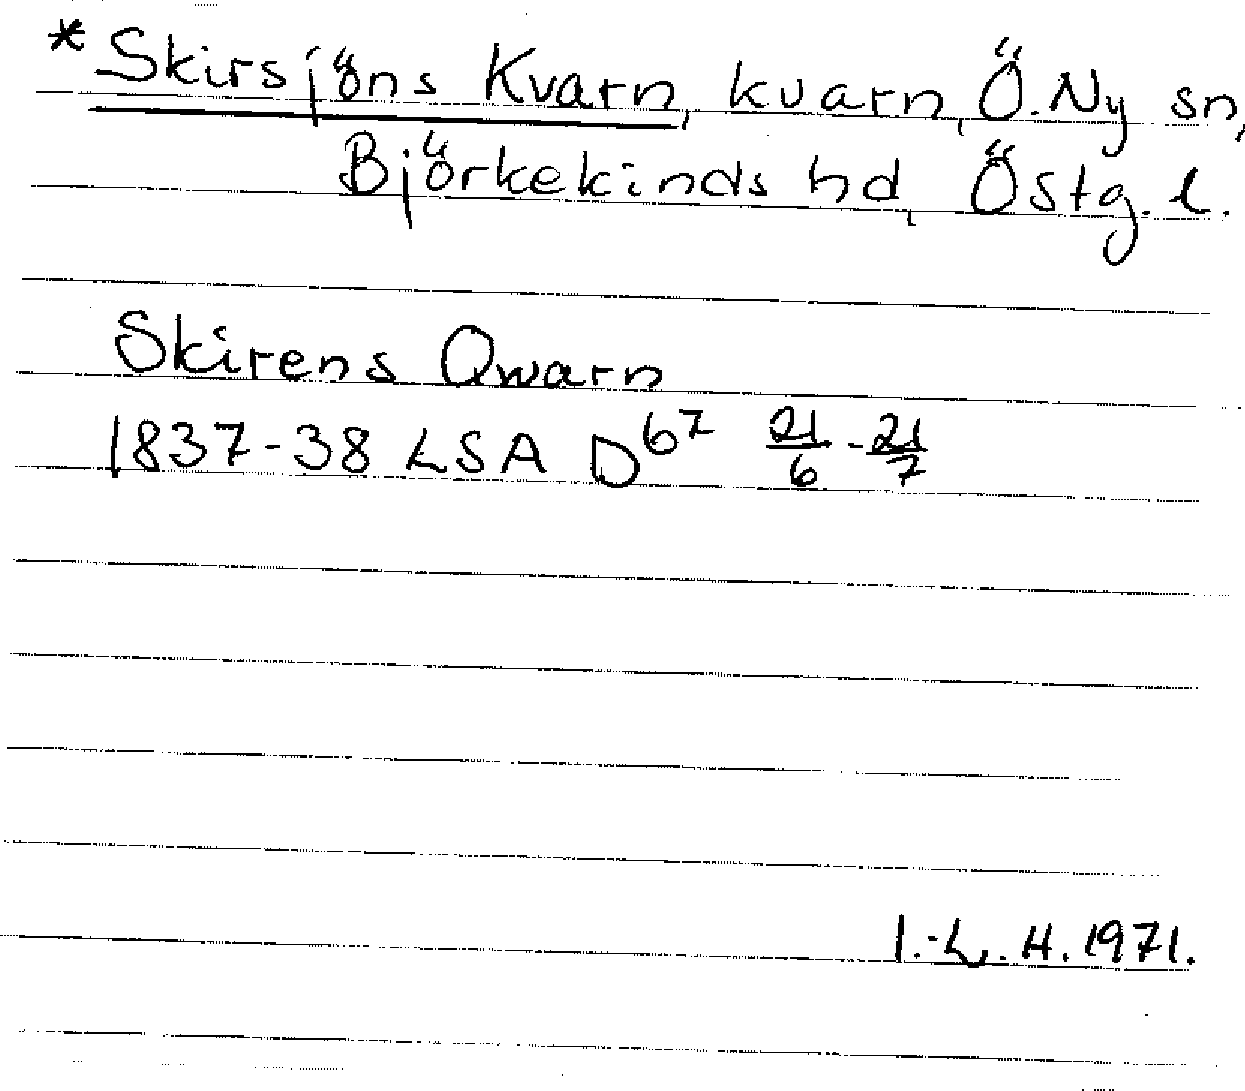 *Skirsjöns Kvarn, kvarn, Ö. Ny sn,
Björkekinds hd, Östg. l.
Skirens Qwarn
1837-38 LSA D67 21/6 - 21/7
I.-L. H. 1971.